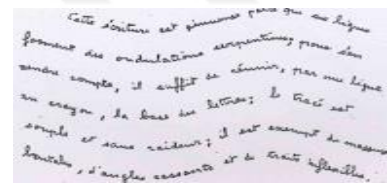 Cette écriture est sinueuse parce que ses lignes
forment des ondulations serpentines; pour s'en
rendre compte, il suffit de réunir, par une ligne
au crayon, la base des lettres; le tracé est
souple et sans raideur; il est exempt de
boucles, d'angles cassants et de traits inflexibles.